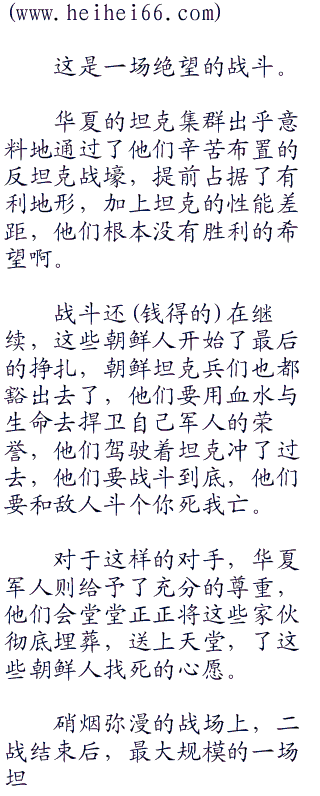 (www.heihei66.com)
这是一场绝望的战斗。
华夏的坦克集群出乎意
料地通过了他们辛苦布置的
反坦克战壕，提前占据了有
利地形，加上坦克的性能差
距，他们根本没有胜利的希
望啊。
战斗还(钱得的)在继
续，这些朝鲜人开始了最后
的挣扎，朝鲜坦克兵们也都
豁出去了，他们要用血水与
生命去捍卫自己军人的荣
誉，他们驾驶着坦克冲了过
去，他们要战斗到底，他们
要和敌人斗个你死我亡。
对于这样的对手，华夏
军人则给予了充分的尊重，
他们会堂堂正正将这些家伙
彻底埋葬，送上天堂，了这
些朝鲜人找死的心愿。
硝烟弥漫的战场上，二
战结束后，最大规模的一场
坦